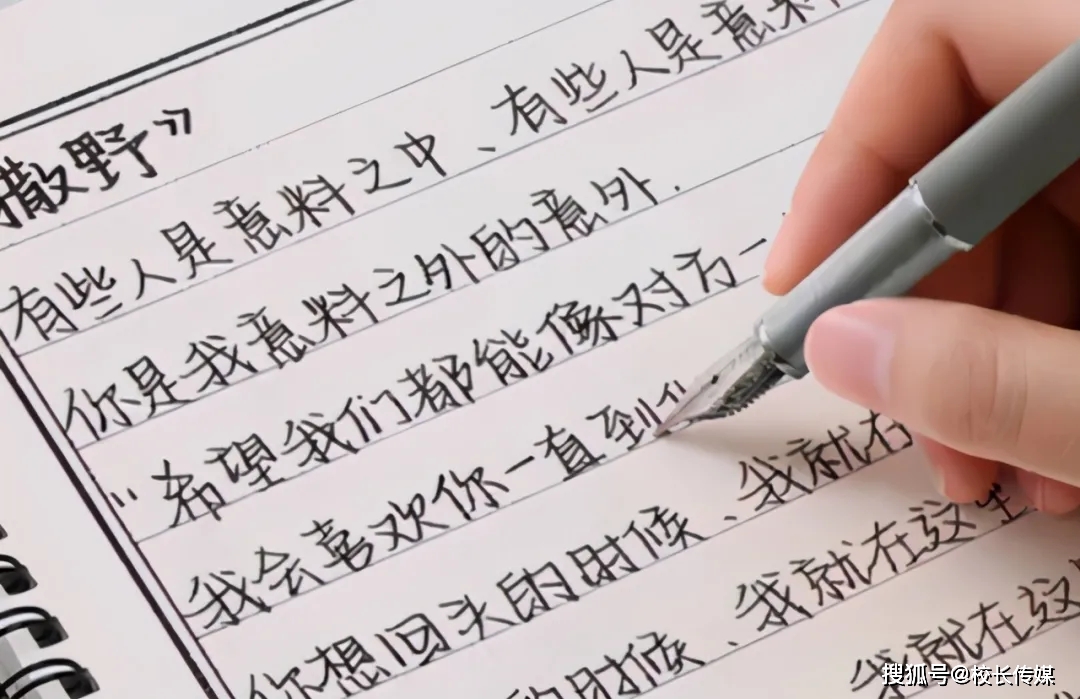 撒野》
有些人是意料之中、有些人是意料
你是我意料之外的意外.
"希望我们都能像对方一
我会喜欢你一直到
你想回头的时候、我就在
的时候、我就在这里
我就在这
搜狐号@校长传媒